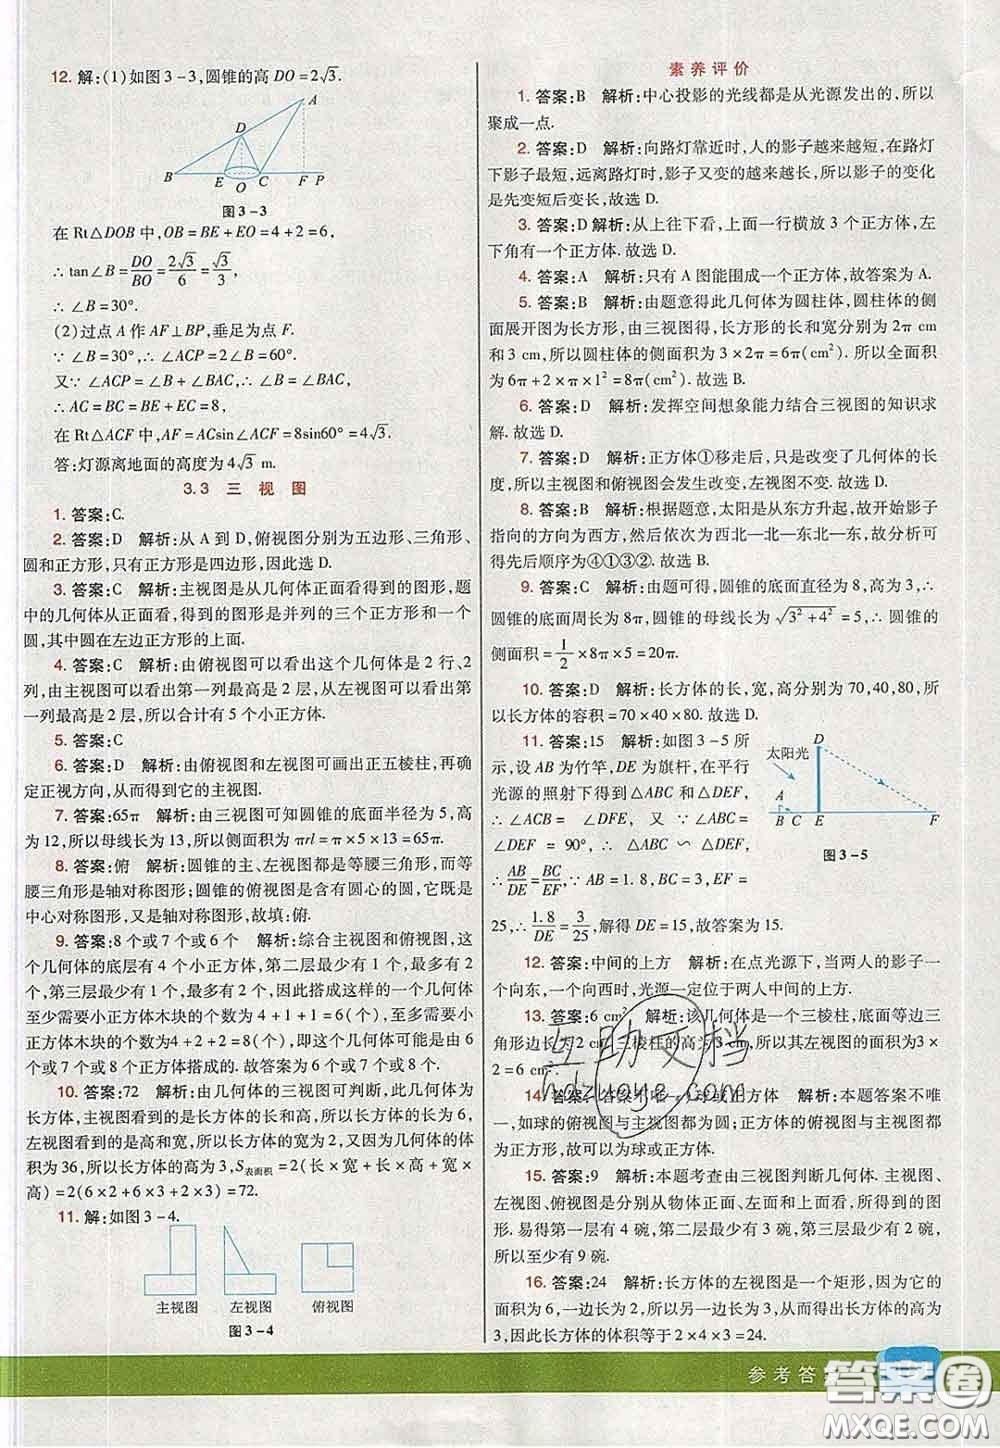 12. 解:(1)如图3-3,圆锥的高DO=2√3.
A
D
B E O C F P
图3-3
在Rt△DOB中,OB=BE+EO=4+2=6,
∴tan∠B=DO/BO=2√3/6=√3/3,
∴∠B=30°.
(2)过点A作AF⊥BP,垂足为点F.
∵∠B=30°,∴∠ACP=2∠B=60°.
又∵∠ACP=∠B+∠BAC,∴∠B=∠BAC,
∴AC=BC=BE+EC=8,
在Rt△ACF中,AF=ACsin∠ACF=8sin60°=4√3.
答:灯源离地面的高度为4√3 m.
3.3 三视图
1. 答案:C.
2. 答案:D 解析:从A到D,俯视图分别为五边形、三角形、
圆和正方形,只有正方形是四边形,因此选D.
3. 答案:C 解析:主视图是从几何体正面看得到的图形,题
中的几何体从正面看,得到的图形是并列的三个正方形和一个
圆,其中圆在左边正方形的上面.
4. 答案:C 解析:由俯视图可以看出这个几何体是2行、2
列,由主视图可以看出第一列最高是2层,从左视图可以看出第
一列最高是2层,所以合计有5个小正方体.
5. 答案:C
6. 答案:D 解析:由俯视图和左视图可画出正五棱柱,再准
确定正视方向,从而得到它的主视图.
7. 答案:65π 解析:由三视图可知圆锥的底面半径为5,高
为12,所以母线长为13,所以侧面积为πrl=π×5×13=65π.
8. 答案:俯 解析:圆锥的主、左视图都是等腰三角形,而等
腰三角形是轴对称图形;圆锥的俯视图是含有圆心的圆,它既是
中心对称图形,又是轴对称图形,故填:俯.
9. 答案:8个或7个或6个 解析:综合主视图和俯视图,这
个几何体的底层有4个小正方体,第二层最少有1个,最多有2
个,第三层最少有1个,最多有2个,因此搭成这样的几何体
至少需要小正方体木块的个数为4+1+1=6(个),至多需要小
正方体木块的个数为4+2+2=8(个),所以这个几何体可能是
6个或7个或8个正方体搭成的.故答案为6个或7个或8个.
10. 答案:72 解析:由几何体的三视图可判断,此几何体为
长方体,主视图看到的是长方体的长和高,所以长方体的长为6,
左视图看到的是高和宽,所以长方体的宽为2,又因为几何体的体
积为36,所以长方体的高为3,S表面积=2(长×宽+长×高+宽×
高)=2(6×2+2×3+6×3)=72.
11. 解:如图3-4.
主视图 左视图 俯视图
图3-4
素养评价
1. 答案:B 解析:中心投影的光线都是从光源发出的,所以
聚成一点.
2. 答案:D 解析:向路灯靠近时,人的影子越来越短,在路灯
下影子最短,远离路灯时,影子又变的越来越长,所以影子的变化
是先变短后变长,故选D.
3. 答案:D 解析:从上往下看,上面一行横放3个正方体,左
下角有一个正方体.故选D.
4. 答案:A 解析:只有A图能围成一个正方体,故答案为A.
5. 答案:B 解析:由题意得此几何体为圆柱体,圆柱体的侧
面展开图为长方形,由三视图得,长方形的长和宽分别为2π cm
和3 cm,所以圆柱体的侧面积为3×2π=6π(cm²).所以全面积
为6π+2×π×1²=8π(cm²).故选B.
6. 答案:D 解析:发挥空间想象能力结合三视图的知识求
解.故选D.
7. 答案:D 解析:正方体①移走后,只是改变了几何体的长
度,所以主视图和俯视图会发生改变,左视图不变.故选D.
8. 答案:B 解析:根据题意,太阳是从东方升起,故开始影子
指向的方向为西方,然后依次为西北—北—东北—东,故分析可
得先后顺序为④①③②.故选B.
9. 答案:C 解析:由题可得,圆锥的底面直径为8,高为3,∴
圆锥的底面周长为8π,圆锥的母线长为√3²+4²=5,∴圆锥的
侧面积=1/2×8π×5=20π.
10. 答案:D 解析:长方体的长,宽,高分别为70,40,80,所
以长方体的容积=70×40×80.故选D.
11. 答案:15 解析:如图3-5所
示,设AB为竹竿,DE为旗杆,在平行
光源的照射下得到△ABC和△DEF,
∴∠ACB=∠DFE,又∵∠ABC=
∠DEF=90°,∴△ABC∽△DEF,
∴AB/DE=BC/EF,∵AB=1.8,BC=3,EF=
太阳光
D
A
B C E F
图3-5
25,∴1.8/DE=3/25,解得DE=15,故答案为15.
12. 答案:中间的上方 解析:在点光源下,当两人的影子一
个向东,一个向西时,光源一定位于两人中间的上方.
13. 答案:6 cm² 解析:该几何体是一个三棱柱,底面等边三
角形边长为2 cm,三棱柱的高为3 cm,所以其左视图的面积为3×
2=6 cm².
14. 答案:答案不唯一,球或正方体 解析:本题答案不唯
一,如球的俯视图与主视图都为圆;正方体的俯视图与主视图都
为正方形,故可以为球或正方体.
15. 答案:9 解析:本题考查由三视图判断几何体.主视图、
左视图、俯视图是分别从物体正面、左面和上面看,所得到的图
形.易得第一层有4碗,第二层最少有3碗,第三层最少有2碗,
所以至少有9碗.
16. 答案:24 解析:长方体的左视图是一个矩形,因为它的
面积为6,一边长为2,所以另一边长为3,所以长方体的高为
3,因此长方体的体积等于2×4×3=24.
参考答
互助文档
hdzuoye.com
答案圈
MXQE.COM